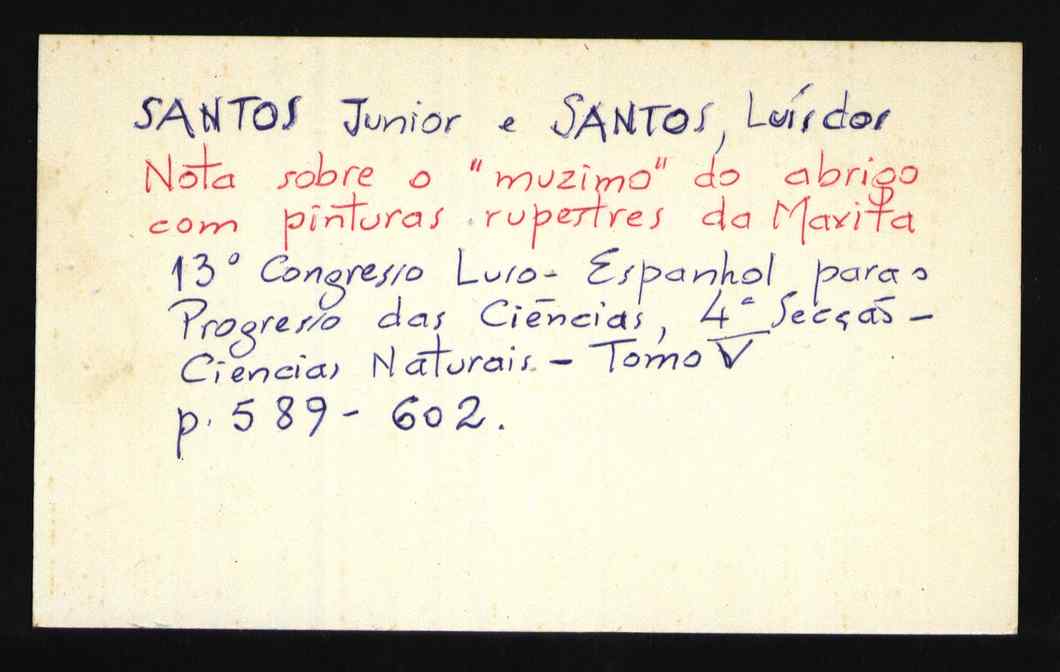 SANTOS Junior e SANTOS, Luís dos
Nota sobre o "muzimo" do abrigo
com pinturas rupestres da Maxita
13º Congresso Luso-Espanhol para o
Progresso das Ciências, 4ª Secção -
Ciencias Naturais - Tomo V
p. 589 - 602.